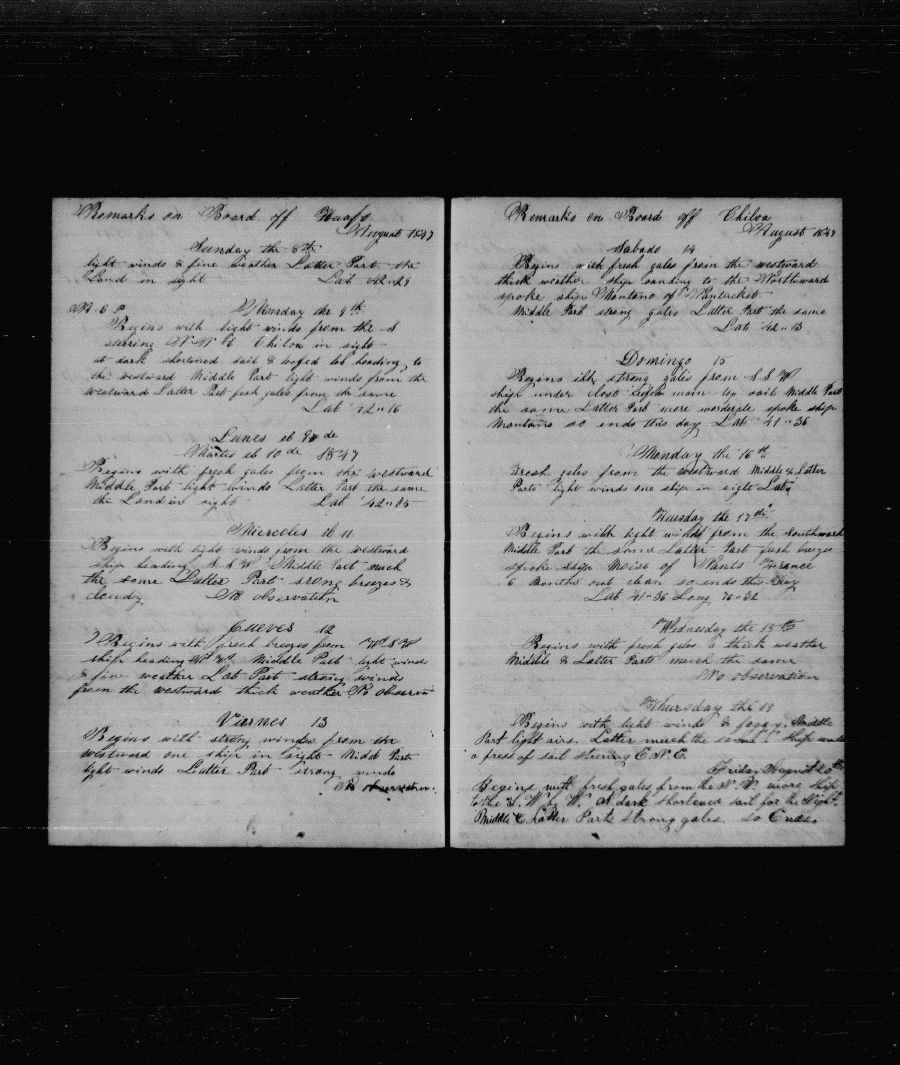 Remarks on Board off Huafo
Auogust 1847
Sunday the 8th
light winds & fine weather Latter Part the
Land in sight Lat 42"29
Monday the 9th
Begins with light winds from the S
stering N N E Chiloa in sight
at dark shortened sail & heading to
the westward Middle Part light winds from the
westward Latter Part fresh gales from the same
Lat 42"16
Lunes el 9 de
Martes el 10 de 1847
Begins with fresh gales from the westward
Middle Part light winds Latter Part the same
the Land in sight Lat 42"05
Miercoles el 11
Begins with light winds from the westward
ship heading S S W Middle Part much
the same Latter Part srong breezes &
cloudy No observation
Jueves 12
Begins with fresh breezes from W S W
ship heading Middle Part light winds
& fine weather Lat Part strong winds
from the westward thick weather No observn
Viernes 13
Begins with strong winds from the
westward one ship in sight Midd Part
light winds Latter Part strong winds
No observation.
Remarks on Board off Chiloa
August 1847
Sabado 14
Begins with fresh gales from the westward
thick weather ship standing to the Northward
spoke ship Montano of Nantucket
Middle Part strong gales Latter Part the same
Lat 42"13
Domingo 15
Begins strong gales from S S W
ship under close main top sail Middle Part
the same Latter Part more morderate spoke ship
Montano so ends this day Lat 41"36
Monday the 16th
Fresh gales from the westward Middle & Latter
Parts light winds one ship in sight Lat
Tuesday the 17th
Begins with light winds from the Southward
Middle Part the same Latter Part fresh breezes
spoke ship of Nants France
6 Months out clean so ends this Day
Lat 41"36 Long 76"32
Wednesday the 18th
Begins with fresh gales & thick weather
Middle & Latter Parts much the same
No observation
Thursday the 19
Begins with light winds & foggy. Middle
Part light airs. Latter much the same. Ship under
a press of sail steering E.N.E.
Friday August 20th
Begins with fresh gales from the N.W. wore ship
to the S. W by W. At dark shortened sail for the Night.
Middle & Latter Parts Strong gales. So Ends.